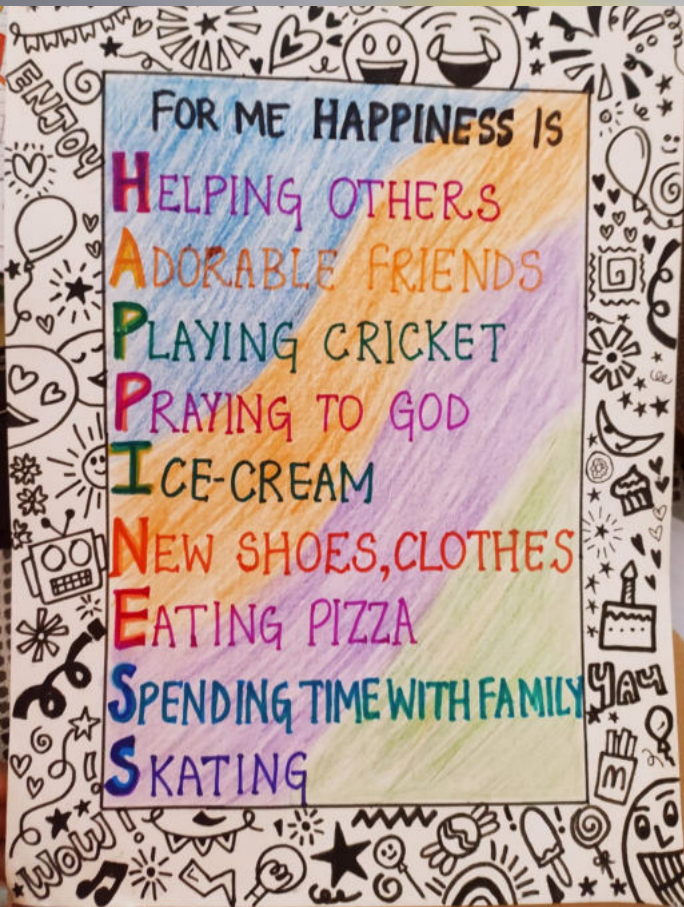 ENJOY
FOR ME HAPPINESS IS
HELPING OTHERS
ADORABLE FRIENDS
PLAYING CRICKET
PRAYING TO GOD
ICE-CREAM
NEW SHOES,CLOTHES
EATING PIZZA
SPENDING TIME WITH FAMILY
SKATING
YAY
M
WOW!